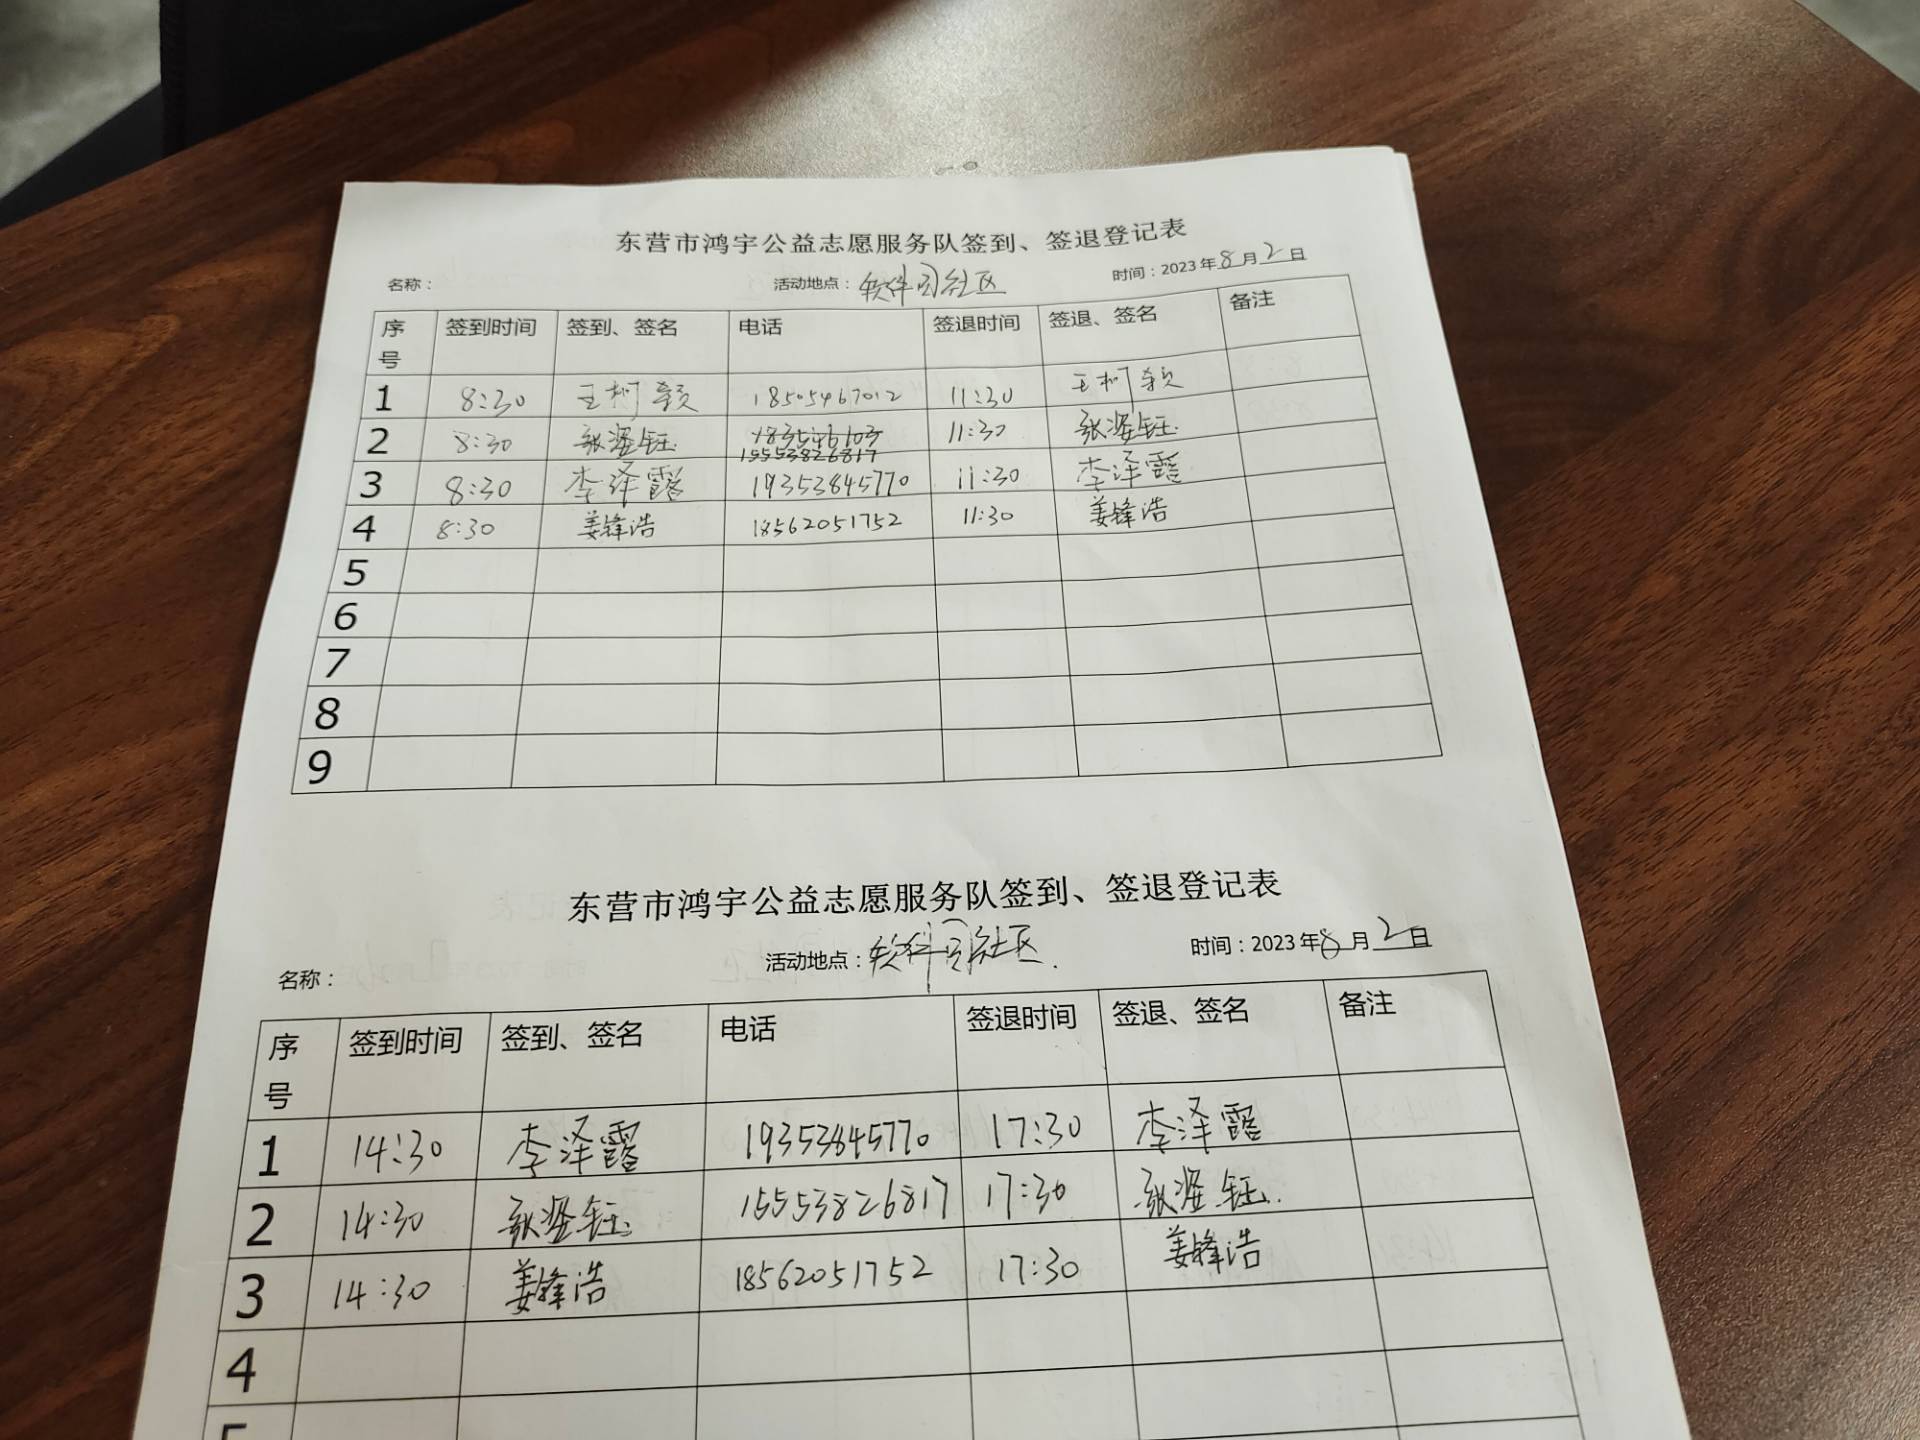 东营市鸿宇公益志愿服务队签到、签退登记表
名称： 活动地点：软件园社区 时间：2023年8月2日
序号 签到时间 签到、签名 电话 签退时间 签退、签名 备注
1 8:30 王柯颖 18505467012 11:30 王柯颖
2 8:30 张姿钰 15553826817 11:30 张姿钰
3 8:30 李泽露 19353845770 11:30 李泽露
4 8:30 姜锋浩 18562051752 11:30 姜锋浩
5
6
7
8
9
东营市鸿宇公益志愿服务队签到、签退登记表
名称： 活动地点：软件园社区. 时间：2023年8月2日
序号 签到时间 签到、签名 电话 签退时间 签退、签名 备注
1 14:30 李泽露 19353845770 17:30 李泽露
2 14:30 张姿钰 15553826817 17:30 张姿钰.
3 14:30 姜锋浩 18562051752 17:30 姜锋浩
4